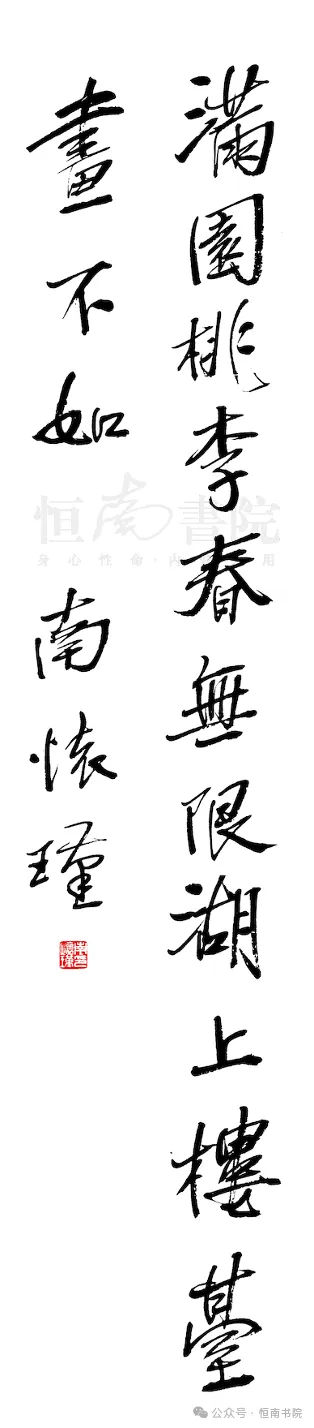 滿園桃李春無限湖上樓臺
畫不如
南懷瑾
恒南書院
身心性命·内
用
公众号·恒南书院